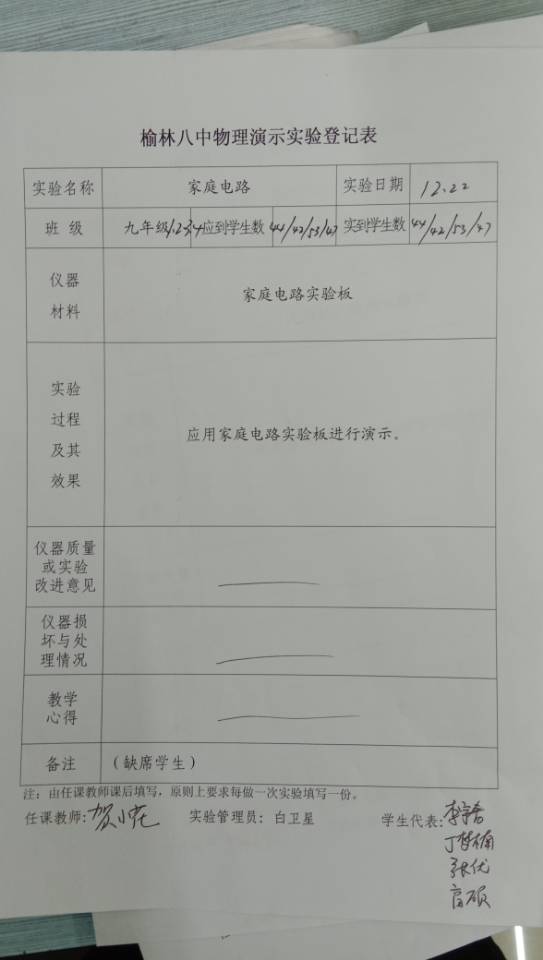 榆林八中物理演示实验登记表
实验名称 家庭电路 实验日期 12.22
班 级 九年级1.2.3.4 应到学生数 44/42/53/47 实到学生数 44/42/53/47
仪器
材料
家庭电路实验板
实验
过程
及其
效果
应用家庭电路实验板进行演示。
仪器质量
或实验
改进意见
仪器损
坏与处
理情况
教学
心得
备注 (缺席学生)
注:由任课教师课后填写,原则上要求每做一次实验填写一份。
任课教师:贺小花 实验管理员:白卫星 学生代表:
张优
高硕